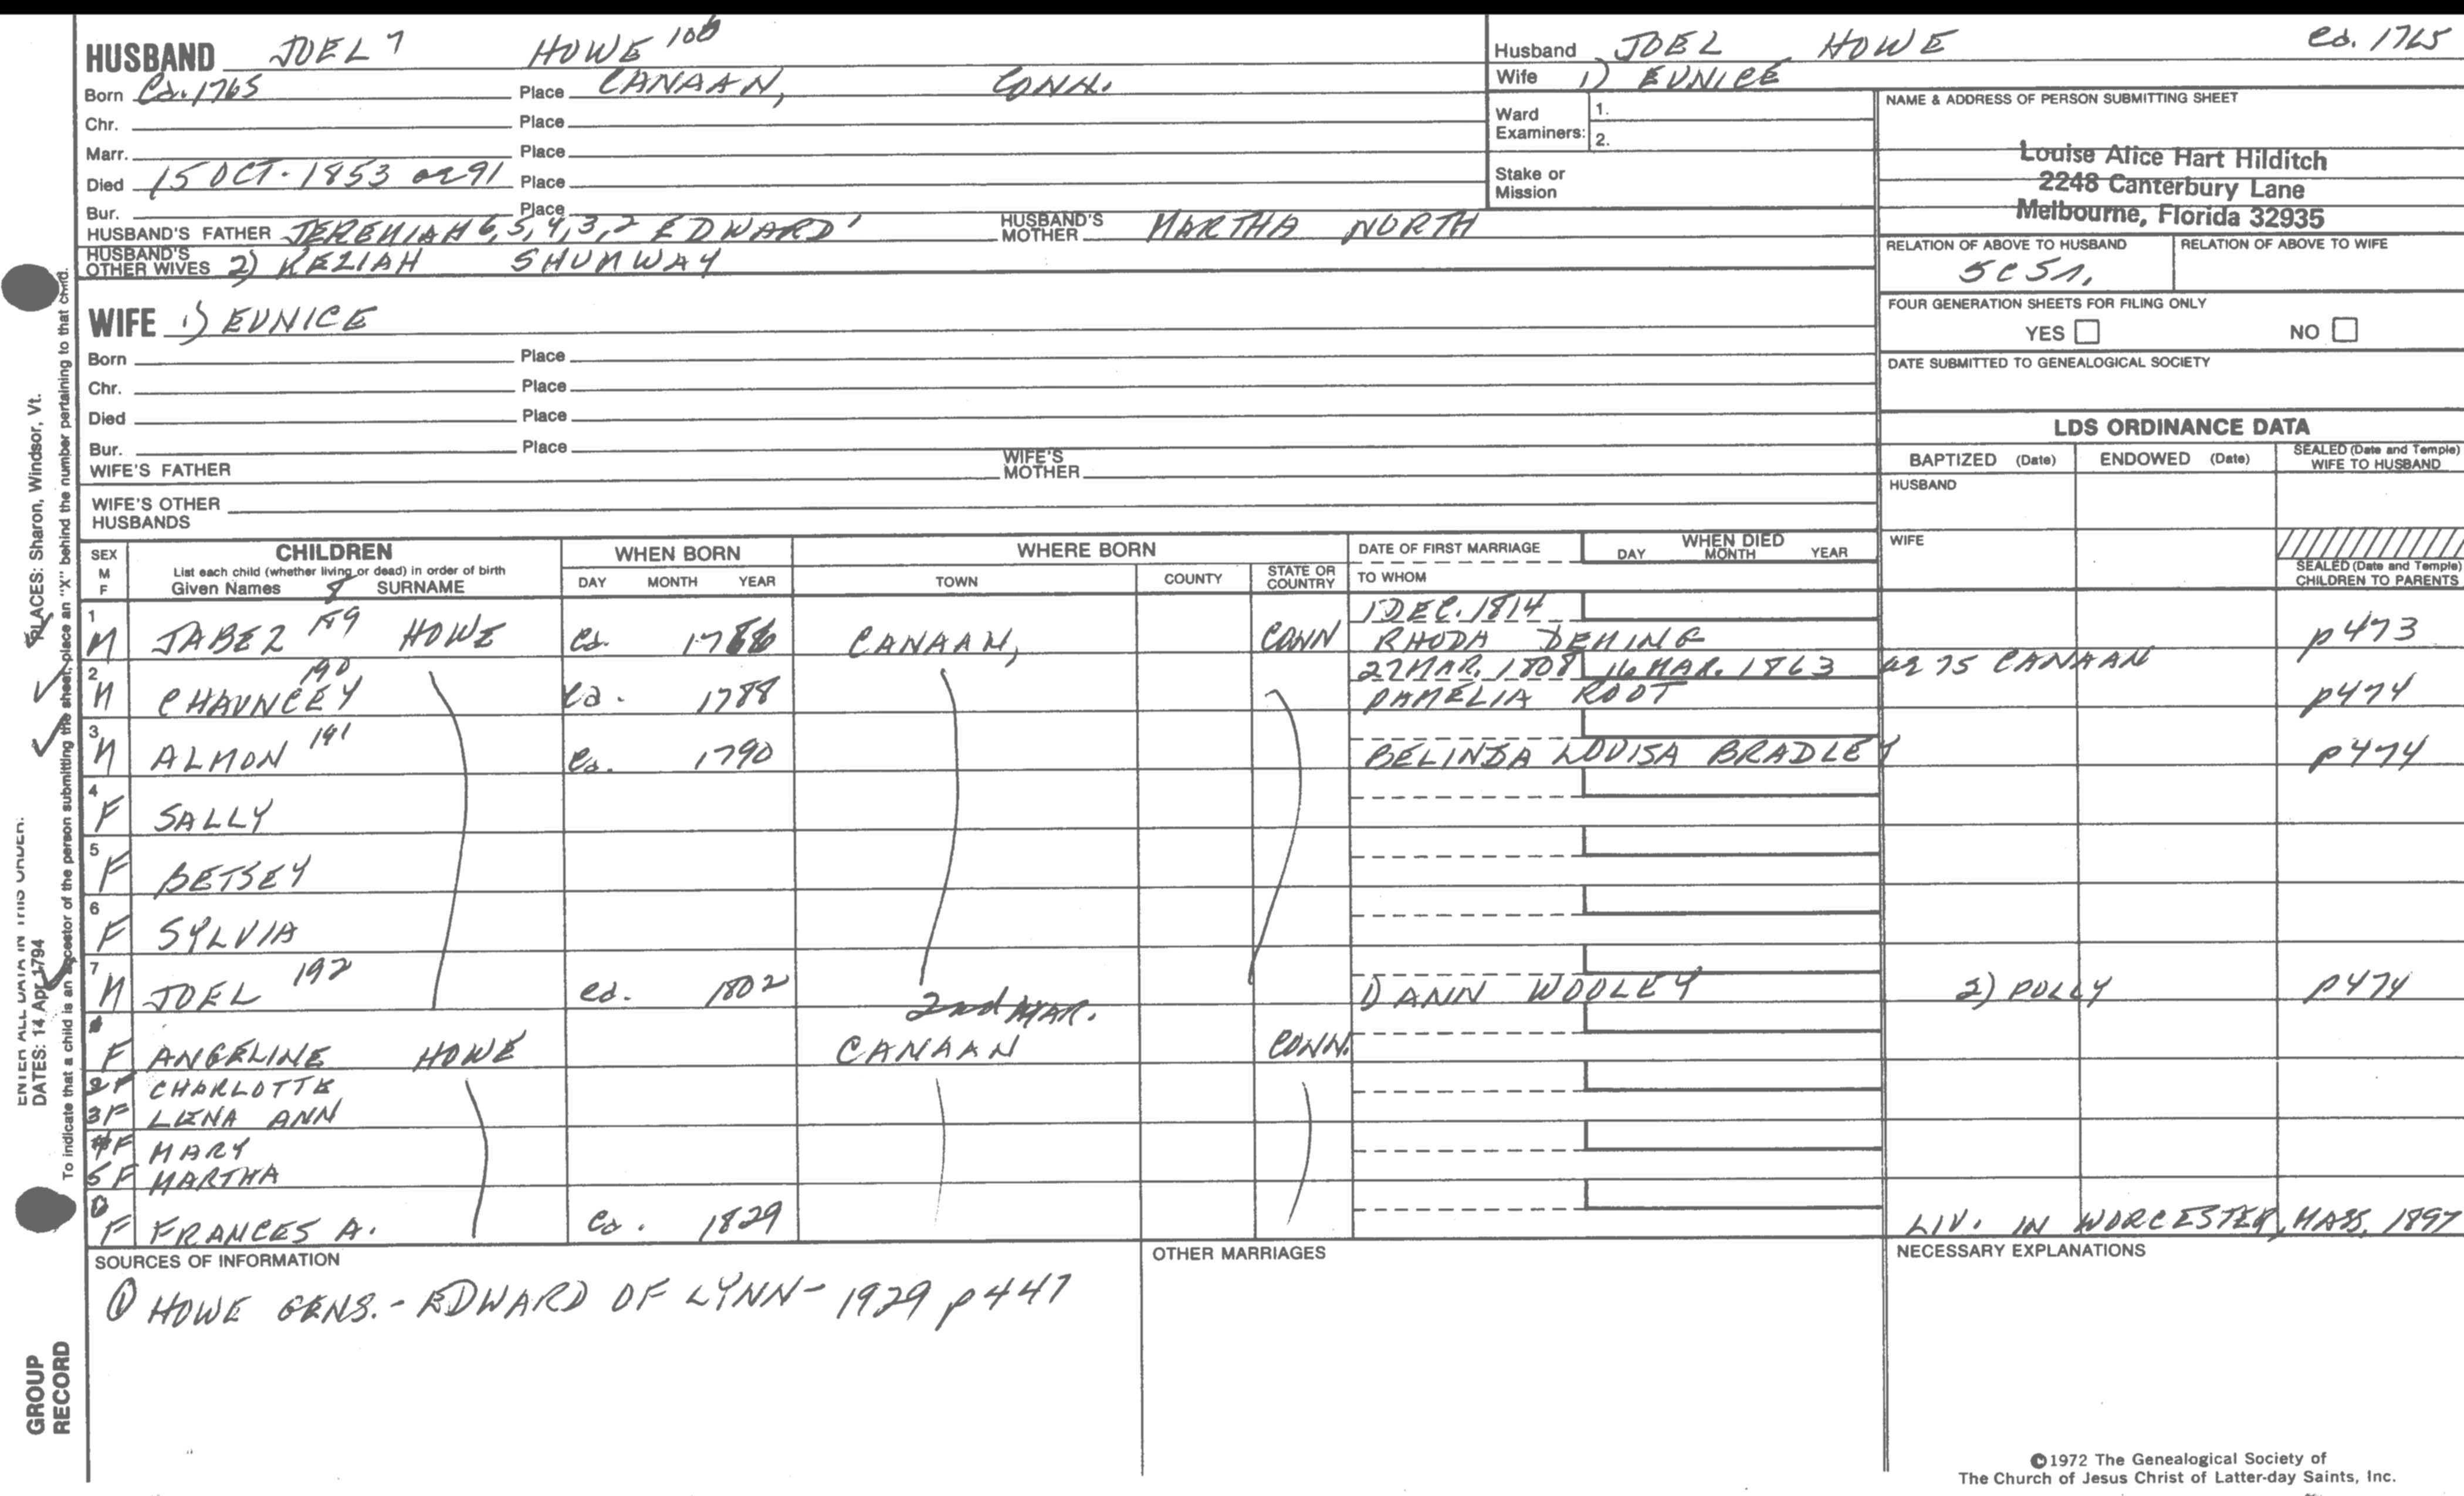 HUSBAND JOEL 7 HOWE 106
Born Ca. 1765 Place CANAAN, CONN.
Chr. Place
Marr. Place
Died 15 OCT. 1853 ae 91 Place
Bur. Place
HUSBAND'S FATHER JEREMIAH 6,5,4,3,2 EDWARD 1 HUSBAND'S MOTHER MARTHA NORTH
HUSBAND'S OTHER WIVES 2) KEZIAH SHUMWAY
WIFE 1) EUNICE
Born Place
Chr. Place
Died Place
Bur. Place
WIFE'S FATHER WIFE'S MOTHER
WIFE'S OTHER HUSBANDS
Husband JOEL HOWE Ca. 1765
Wife 1) EUNICE
Ward Examiners: 1.
2.
Stake or Mission
NAME & ADDRESS OF PERSON SUBMITTING SHEET
Louise Alice Hart Hilditch
2248 Canterbury Lane
Melbourne, Florida 32935
RELATION OF ABOVE TO HUSBAND RELATION OF ABOVE TO WIFE
5C5r.
FOUR GENERATION SHEETS FOR FILING ONLY
YES NO
DATE SUBMITTED TO GENEALOGICAL SOCIETY
LDS ORDINANCE DATA
BAPTIZED (Date) ENDOWED (Date) SEALED (Date and Temple) WIFE TO HUSBAND
HUSBAND
WIFE
SEALED (Date and Temple) CHILDREN TO PARENTS
SEX M F CHILDREN WHEN BORN WHERE BORN DATE OF FIRST MARRIAGE WHEN DIED
List each child (whether living or dead) in order of birth
Given Names 8 SURNAME DAY MONTH YEAR TOWN COUNTY STATE OR COUNTRY TO WHOM DAY MONTH YEAR
1 DEC. 1814
1 M JABEZ 189 HOWE Ca. 1786 CANAAN, CONN RHODA DEMING p473
27 MAR. 1808 16 MAR. 1863 ae 75 CANAAN
2 M CHAUNCEY 190 Ca. 1788 PAMELIA ROOT p474
3 M ALMON 191 Ca. 1790 BELINDA LOUISA BRADLEY p474
4 F SALLY
5 F BETSEY
6 F SYLVIA
7 M JOEL 192 Ca. 1802 1) ANN WOOLEY 2) POLLY p474
2nd MAR.
F ANGELINE HOWE CANAAN CONN.
2 F CHARLOTTE
3 F LENA ANN
4 F MARY
5 F MARTHA
6 F FRANCES A. Ca. 1829 LIV. IN WORCESTER, MASS, 1897
SOURCES OF INFORMATION OTHER MARRIAGES NECESSARY EXPLANATIONS
① HOWE GENS. - EDWARD OF LYNN - 1929 p447
©1972 The Genealogical Society of
The Church of Jesus Christ of Latter-day Saints, Inc.
ENTER ALL DATA IN THIS ORDER:
DATES: 14 Apr 1794 PLACES: Sharon, Windsor, Vt.
To indicate that a child is an ancestor of the person submitting the sheet, place an "X" behind the number pertaining to that child.
GROUP
RECORD